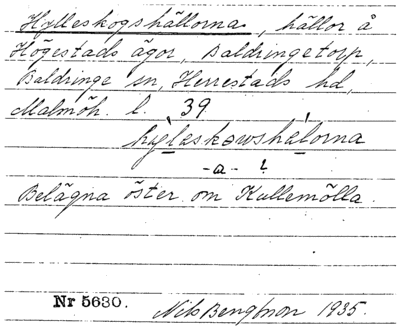 Hylleskogshällorna, hällor å
Högestads ägor, Baldringetorp,
Baldringe sn, Herrestads hd,
Malmöh. l. 39
hyleskowshälorna
-a- ?
Belägna öster om Kullemölla.
Nr 5630. Nils Bengtson 1935.